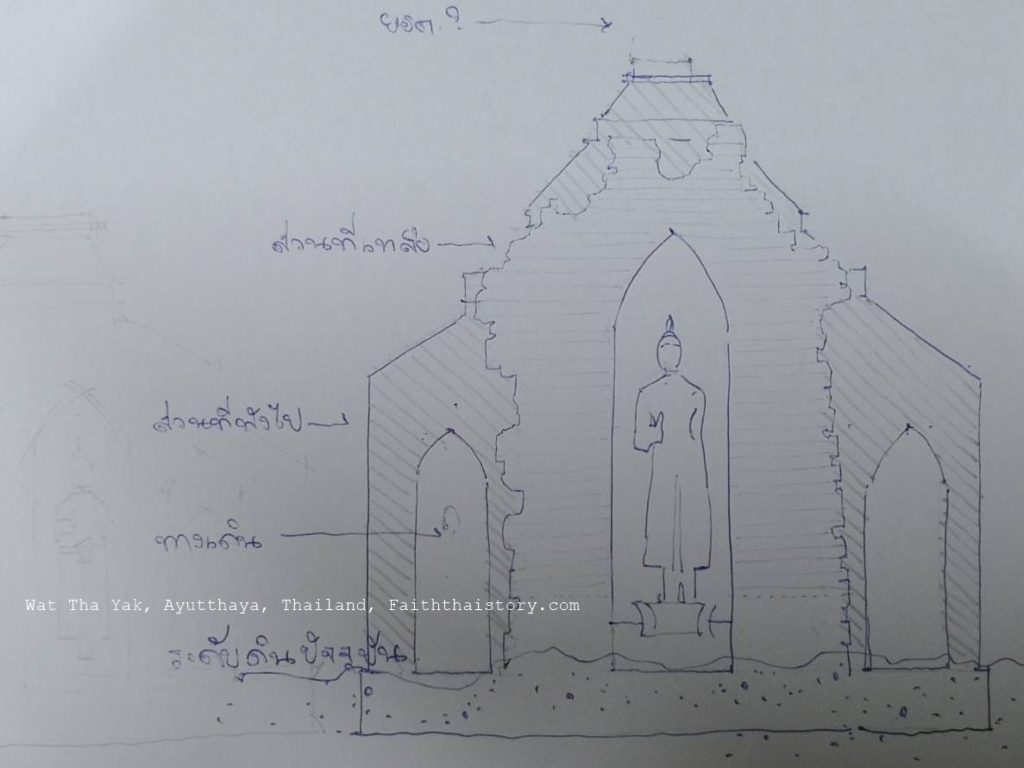 ยอด ?
ส่วนที่เหลือ
ส่วนที่พังไป
ทางเดิน
Wat Tha Yak, Ayutthaya, Thailand, Faiththaistory.com
ระดับดินปัจจุบัน